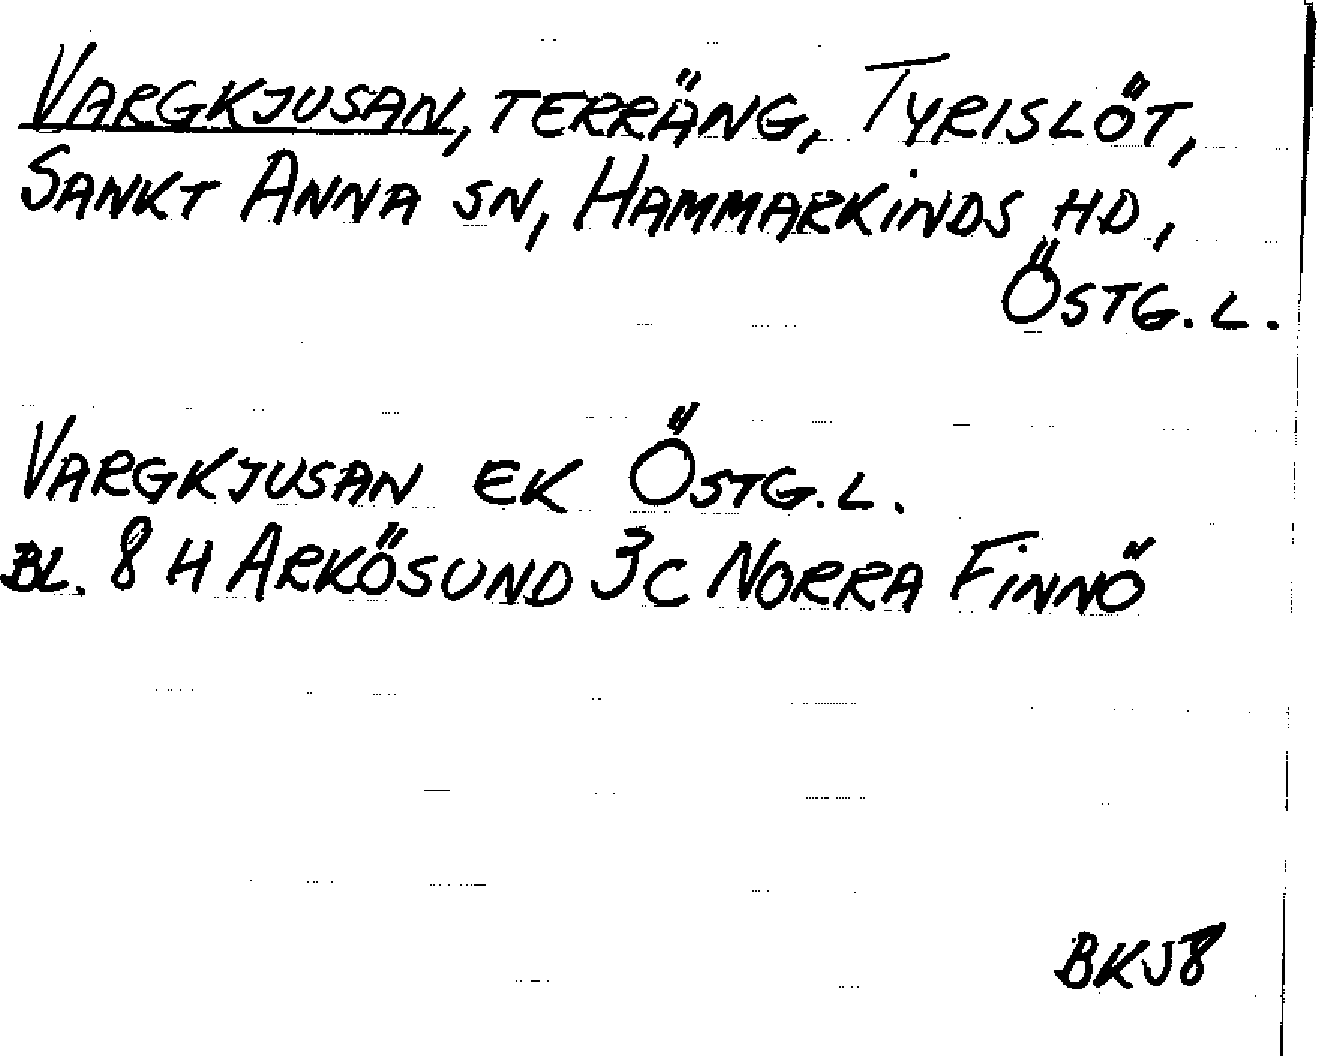 VARGKJUSAN, TERRÄNG, TYRISLÖT,
SANKT ANNA SN, HAMMARKINDS HD,
ÖSTG. L.
VARGKJUSAN EK ÖSTG. L.
BL. 8 H ARKÖSUND 3C NORRA FINNÖ
BKJ8